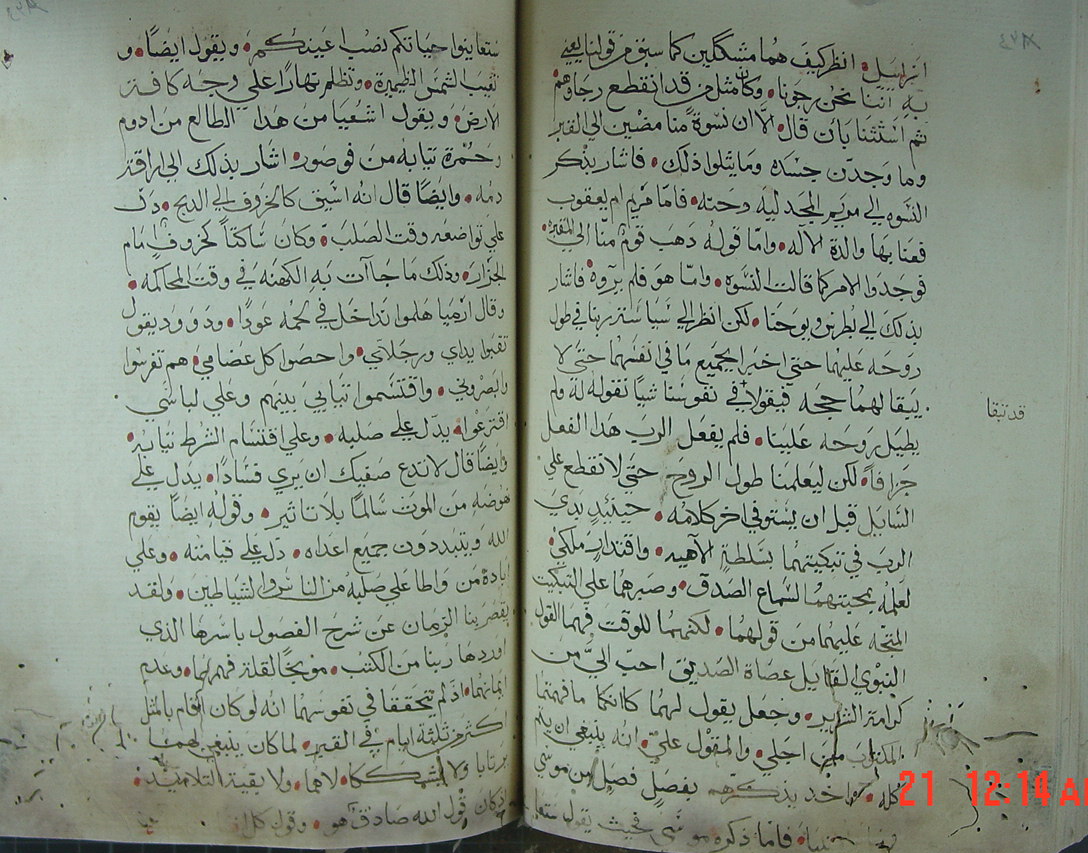 اسراييل انظر كيف هما مشككين كما سبق من قولنا يعني
به اننا نحن رجونا وكان مثل من قد انقطع رجاوهم
ثم استثنا بان قال الا ان نسوة منا مضين الى القبر
وما وجدن جسده وما يتلوا ذلك فاشار بذكر
النسوه الي مريم المجدليه وحنه فاما مريم ام يعقوب
فعنا بها والدة الاله واما قوله دهب قوم منا الي المقبره
فوجدوا الامر كما قالت النسوه واما هو فلم يروه فاشار
بذلك الي بطرس ويوحنا لكن انظر الي سياسة ربنا في طول
روحه عليهما حتي اخبرا بجميع ما في انفسهما حتي لا
يبقا لهما حجه فيقولا في نفوسنا شيا نقوله له ولم
قد تبقا
يطيل روحه علينا فلم يفعل الرب هذا الفعل
جزافا لكن ليعلمنا طول الروح حتي لا نقطع علي
السايل قبل ان يستوفي اخر كلامه حينيذ بدي
الرب في تبكيتهما بسلطة الاهيه واقتدار ملكي
لعلمه بمحبتهما لسماع الصدق وصبرهما علي التبكيت
المتجه عليهما من قولهما لكنهما للوقت فهما القول
النبوي القايل عصاة الصديق احب الي من
كرامة الشرير وجعل يقول لهما كانكما ما فهمتما
المكتوب من اجلي والمقول علي انه ينبغي ان يتم
كله واخد يذكرهم بفصل فصل من موسي
فاما ذكره موسي فحيث يقول ستعا
ستعاينوا حياتكم نصب اعينكم ويقول ايضا و
تغيب الشمس الظهيرة وتظلم نهارا علي وجه كافة
الارض ويقول اشعيا من هدا الطالع من ادوم
وحمرة تيابه من فوصور اشار بذلك الي اراقة
دمه وايضا قال انه اسيق كالخروف الي الدبح دل
علي تواضعه وقت الصلب وكان ساكتا كخروف امام
الجزار وذلك ما جاات به الكهنه في وقت المحاكمه
وقال ارميا هلموا نداخل في لحمه عودا ودوود يقول
تقبوا يداي ورجلاتي واحصوا كل عضامي هم تفرسوا
وابصروني واقتسموا تيابي بينهم وعلي لباسي
اقترعوا يدل علي صلبه وعلي اقتسام الشرط تيابه
وايضا قال لا تدع صفيك ان يري فسادا يدل علي
نهوضه من الموت سالما بلا تاتير وقوله ايضا يقوم
الله ويتبددون جميع اعداه دل علي قيامته وعلي
ابادة من واطا علي صلبه من الناس والشياطين ولقد
يقصر بنا الزمان عن شرح الفصول باسرها الذي
اوردها ربنا من الكتب موبخا لقلة فهمهما وعدم
ايمانهما اذ لم يتحققا في نفوسهما انه لو كان اقام بالمثل
اكتر من تلتة ايام في القبر لما كان ينبغي لهما
يرتابا ولا يشككا لاهما ولا بقية التلاميد
اذ كان قول الله صادق هو وقول كل